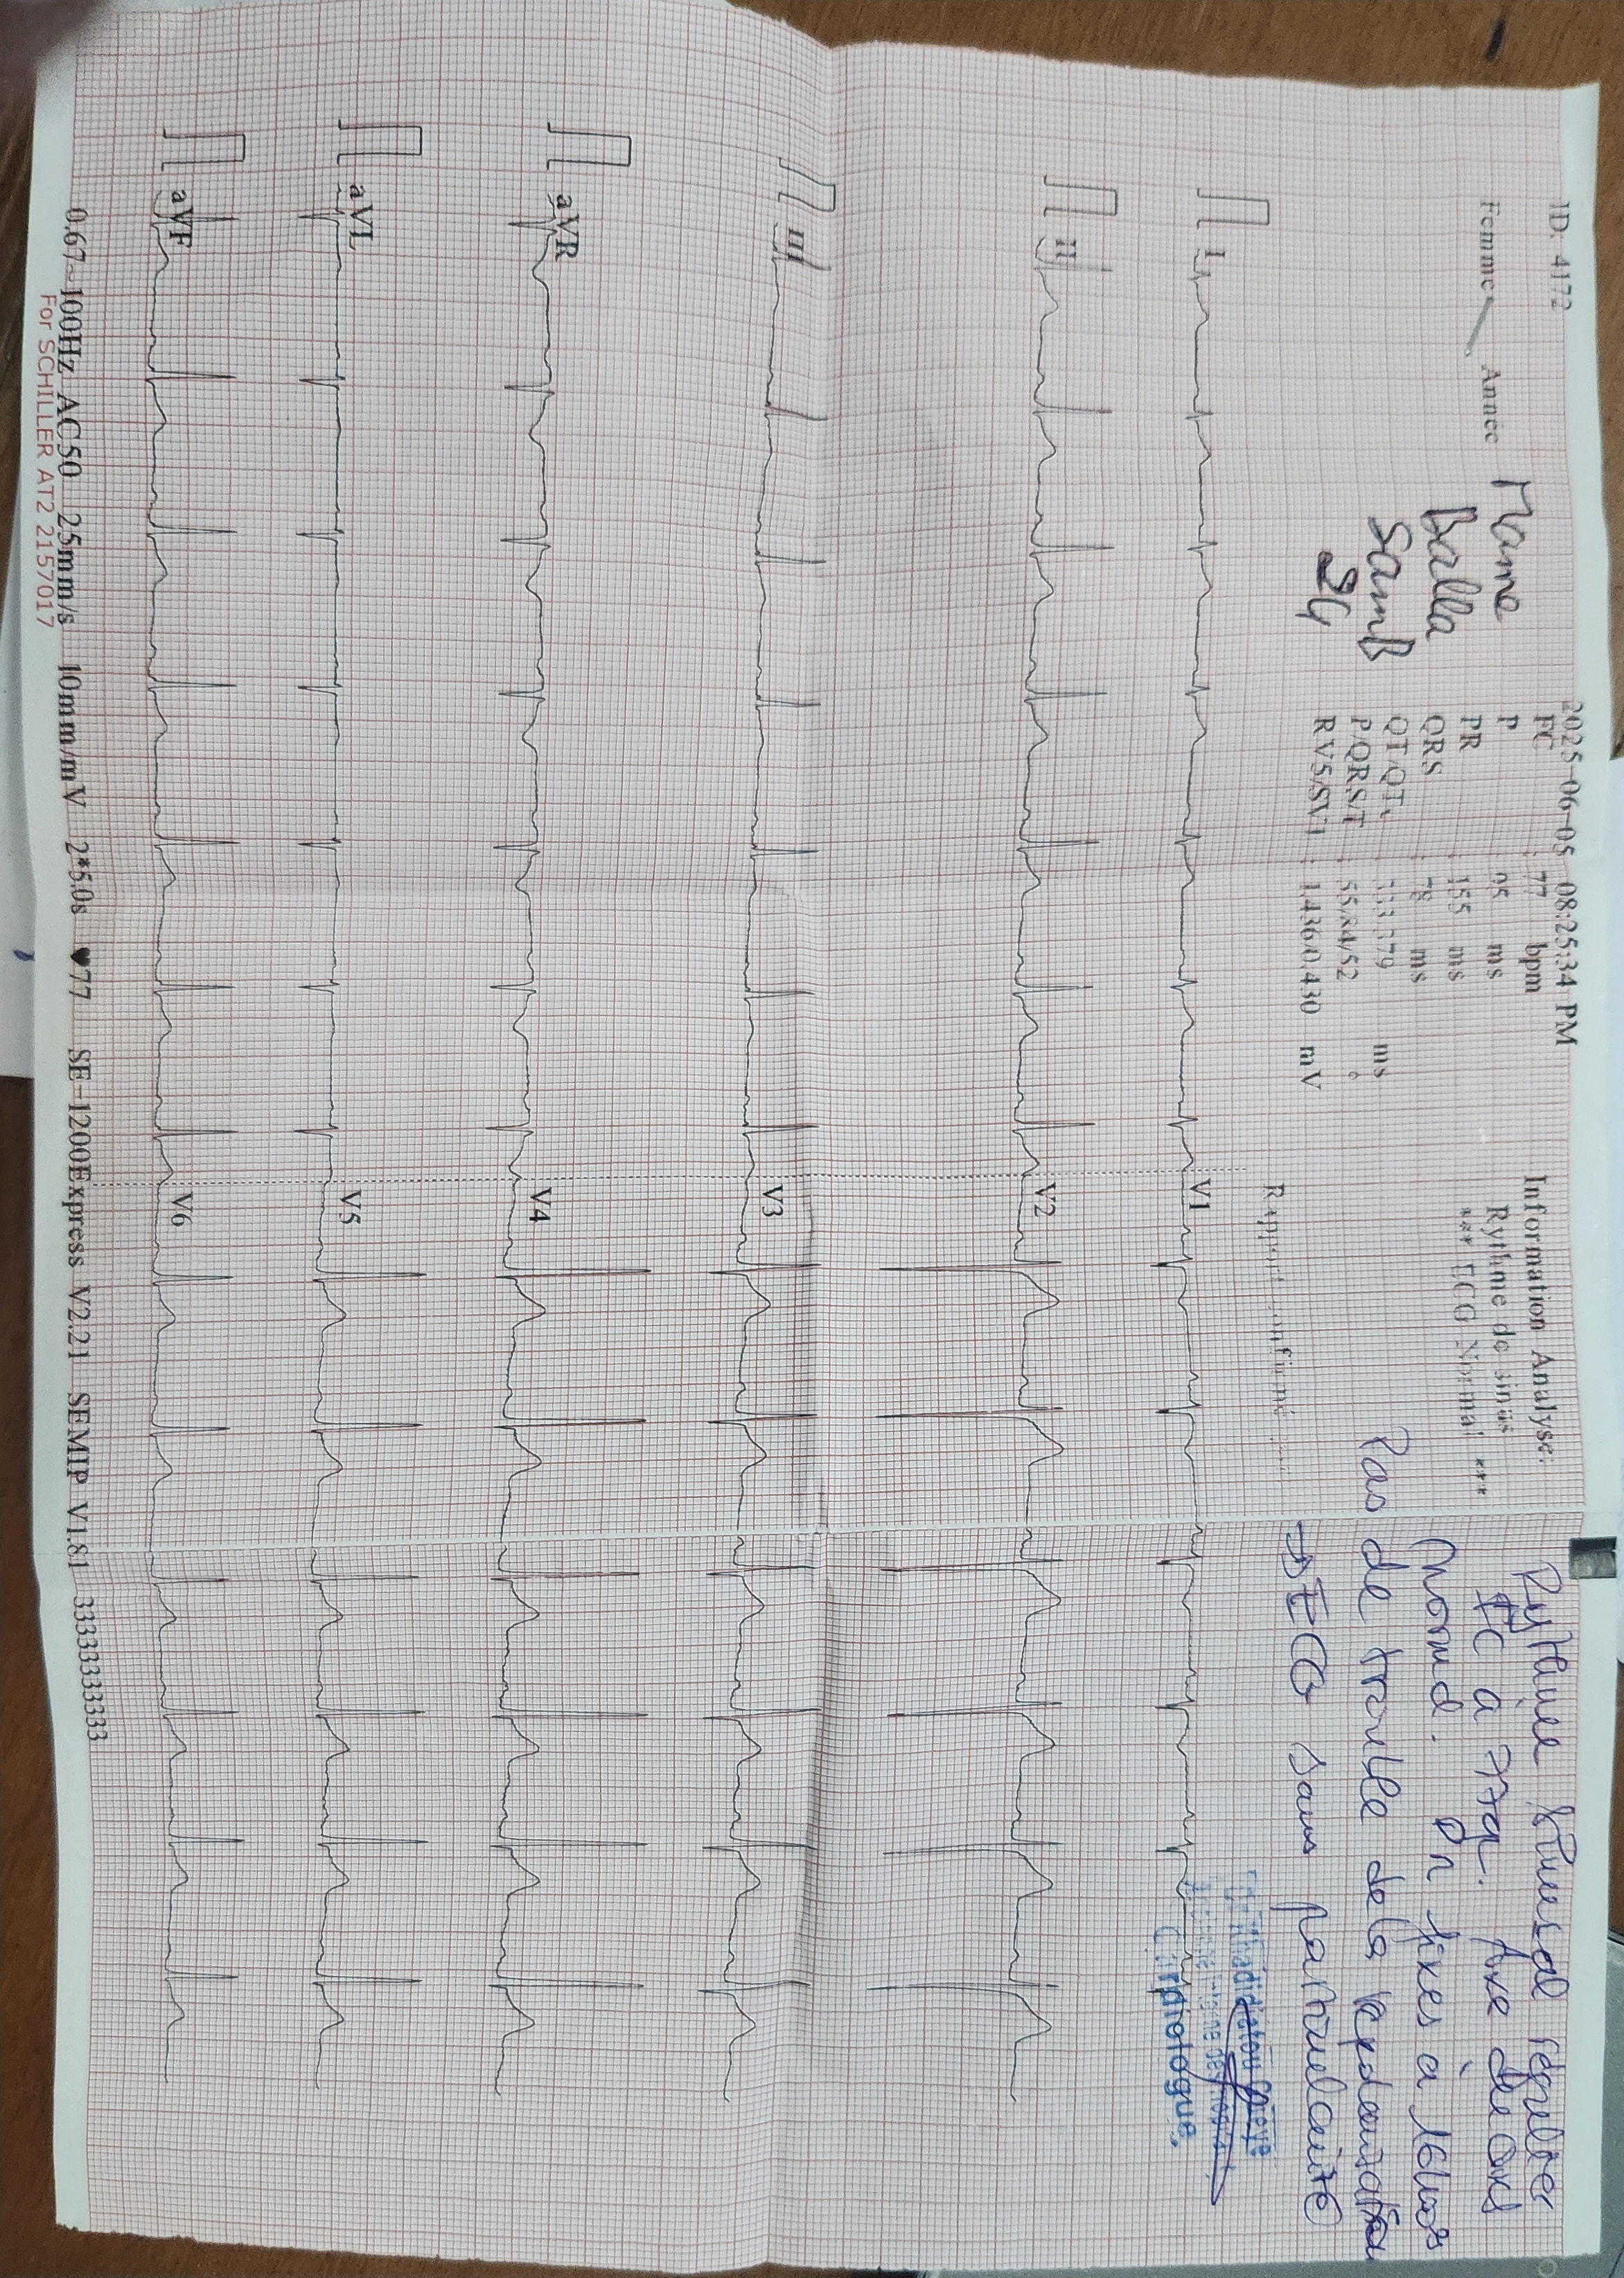 ID: 4172
Femme Année
Mame
Balla
Samb
24
2025-06-05 08:25:34 PM
FC : 77 bpm
P : 95 ms
PR : 155 ms
QRS : 78 ms
QT/QTc : 333/379 ms
P/QRS/T : 55/84/52 °
RV5/SV1 : 1.436/0.430 mV
Information Analyse:
Rythme de sinus
*** ECG Normal ***
Rapport confirmé
Rythme sinusal régulier
FC à 77 . Axe de QRS
normal. Pr fixes à
Pas de trouble de la repolarisation
→ ECG sans particularité
Cardiologue
I
II
III
aVR
aVL
aVF
V1
V2
V3
V4
V5
V6
0.67~100Hz AC50 25mm/s 10mm/mV 2*5.0s ♥77 SE-1200Express V2.21 SEMIP V1.81 3333333333
For SCHILLER AT2 2157017